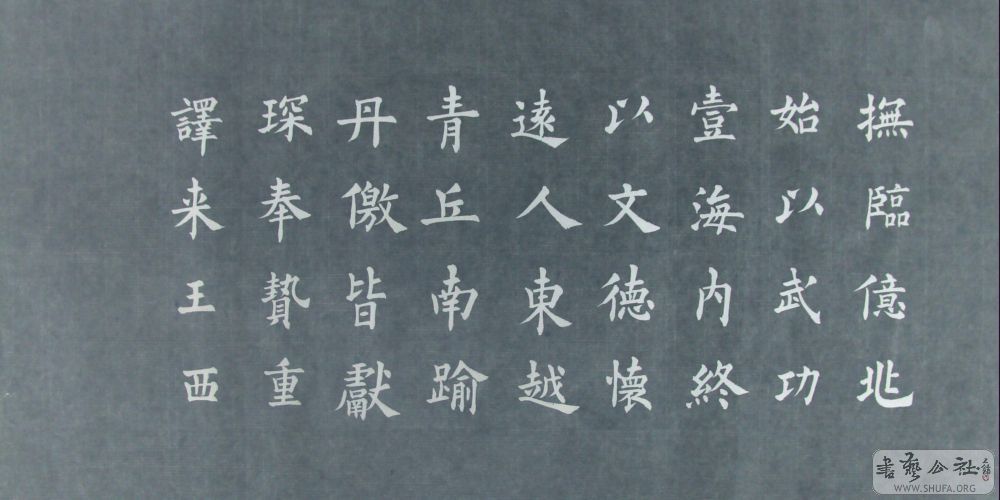 撫臨億兆
始以武功
壹海內終
以文德懷
遠人東越
青丘南踰
丹儌皆獻
琛奉贄重
譯来王西
書藝公社
WWW.SHUFA.ORG